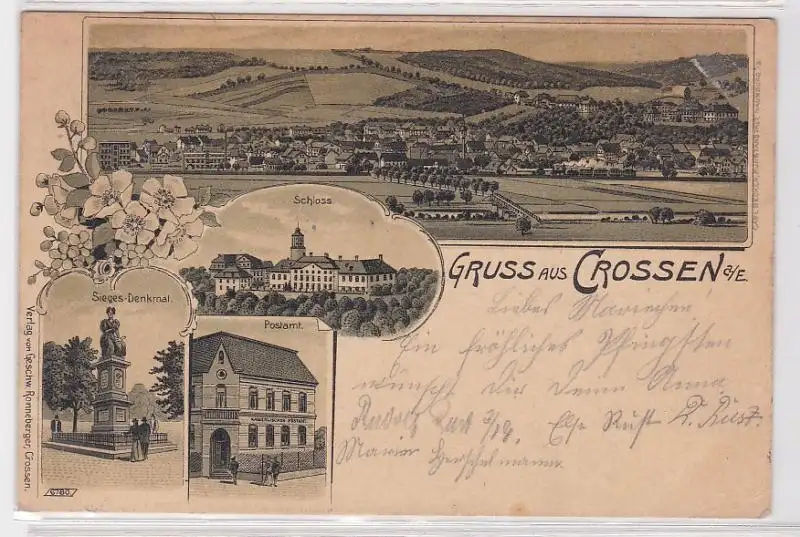 Schloss
GRUSS AUS CROSSEN a/E.
Sieges-Denkmal.
Postamt.
KAISERLICHES POSTAMT
Verlag von Geschw. Ronneberger, Crossen.
6780
Liebes Mariechen!
Ein fröhliches Pfingsten
wünscht Dir Deine Anna
Rudolf Else Rust R. Rust.
Marie Herschelmann